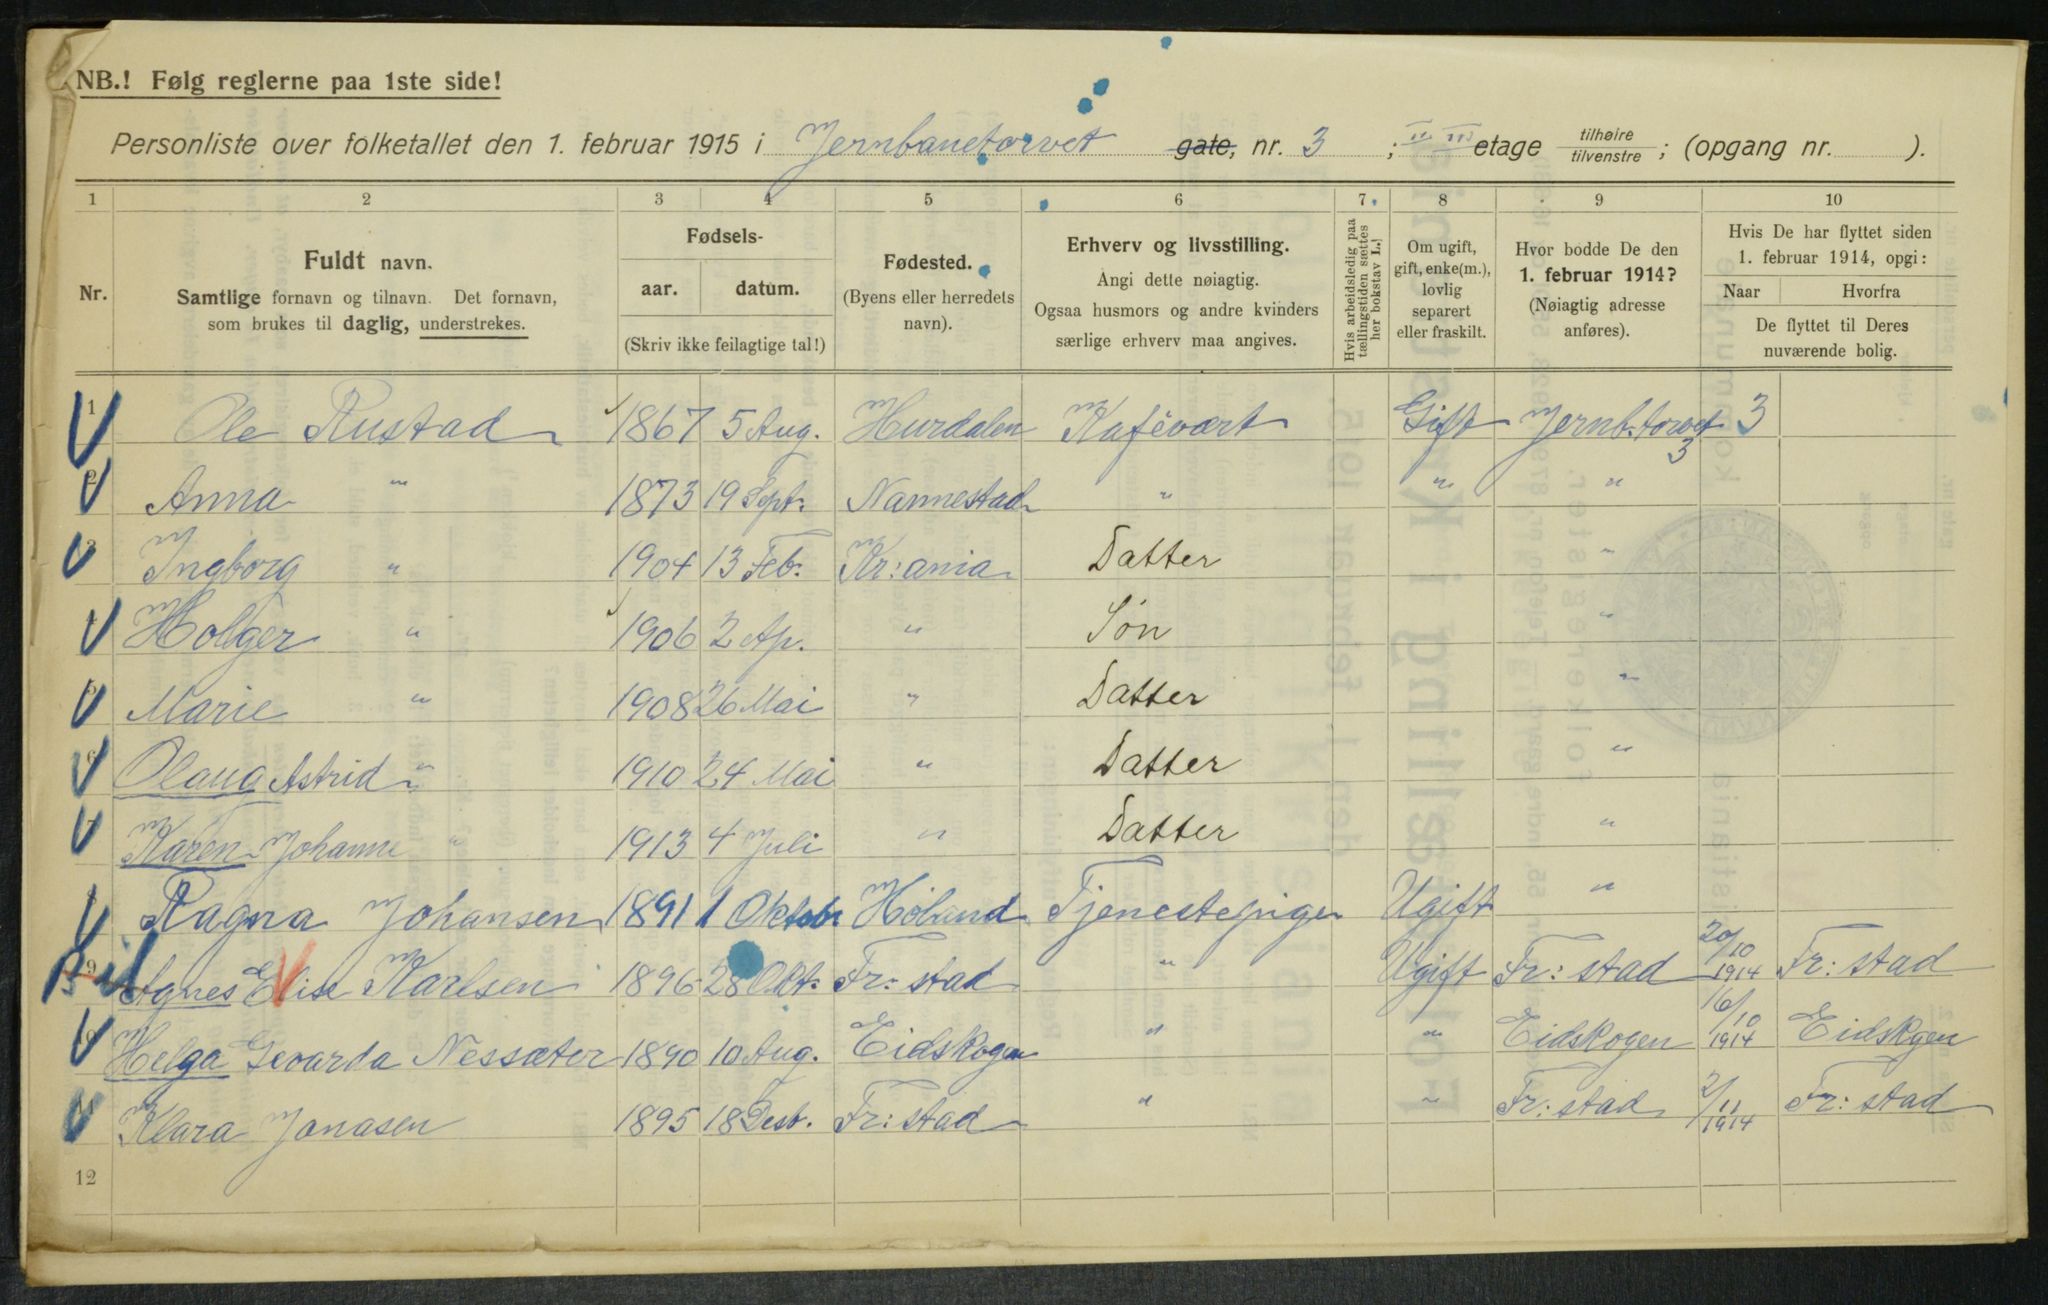 NB.! Følg reglerne paa 1ste side!
Personliste over folketallet den 1. februar 1915 i Jernbanetorvet gate, nr. 3 ; II III etage tilhøire / tilvenstre ; (opgang nr. ).
1 2 3 4 5 6 7 8 9 10
Nr.
Fuldt navn.
Samtlige fornavn og tilnavn. Det fornavn,
som brukes til daglig, understrekes.
Fødsels-
aar. datum.
(Skriv ikke feilagtige tal!)
Fødested.
(Byens eller herredets
navn).
Erhverv og livsstilling.
Angi dette nøiagtig.
Ogsaa husmors og andre kvinders
særlige erhverv maa angives.
Hvis arbeidsledig paa
tællingstiden sættes
her bokstav L.!
Om ugift,
gift, enke(m.),
lovlig
separert
eller fraskilt.
Hvor bodde De den
1. februar 1914?
(Nøiagtig adresse
anføres).
Hvis De har flyttet siden
1. februar 1914, opgi:
Naar Hvorfra
De flyttet til Deres
nuværende bolig.
1 Ole Rustad 1867 5 Aug. Hurdalen Kafévært Gift Jernb.torvet 3
3
2 Anna " 1873 19 Sept. Nannestad " " "
3 Ingborg " 1904 13 Feb. Kr:ania Datter "
4 Holger " 1906 2 Ap. " Søn "
5 Marie " 1908 26 Mai " Datter "
6 Olaug Astrid " 1910 24 Mai " Datter "
7 Karen Johanne " 1913 4 Juli " Datter "
8 Ragna Johansen 1891 1 Oktobr Høland Tjenestepige Ugift "
9 Agnes Elise Karlsen 1896 28 Okt. Fr:stad " Ugift Fr:stad 20/10 1914 Fr:stad
10 Helga Gevarda Nessæter 1890 10 Aug. Eidskogen " " Eidskogen 16/10 1914 Eidskgen
11 Klara Jonasen 1895 18 Desb. Fr:stad " " Fr:stad 2/11 1914 Fr:stad
12